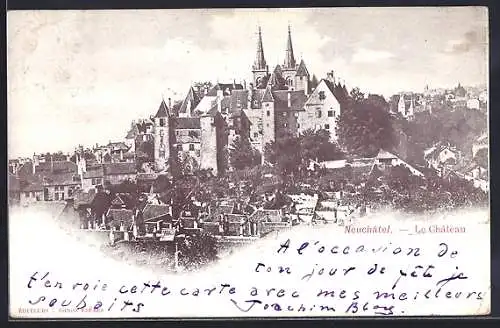 Neuchâtel. — Le Château
A l'occasion de
ton jour de fête je
t'en voie cette carte avec mes meilleurs
souhaits Joachim